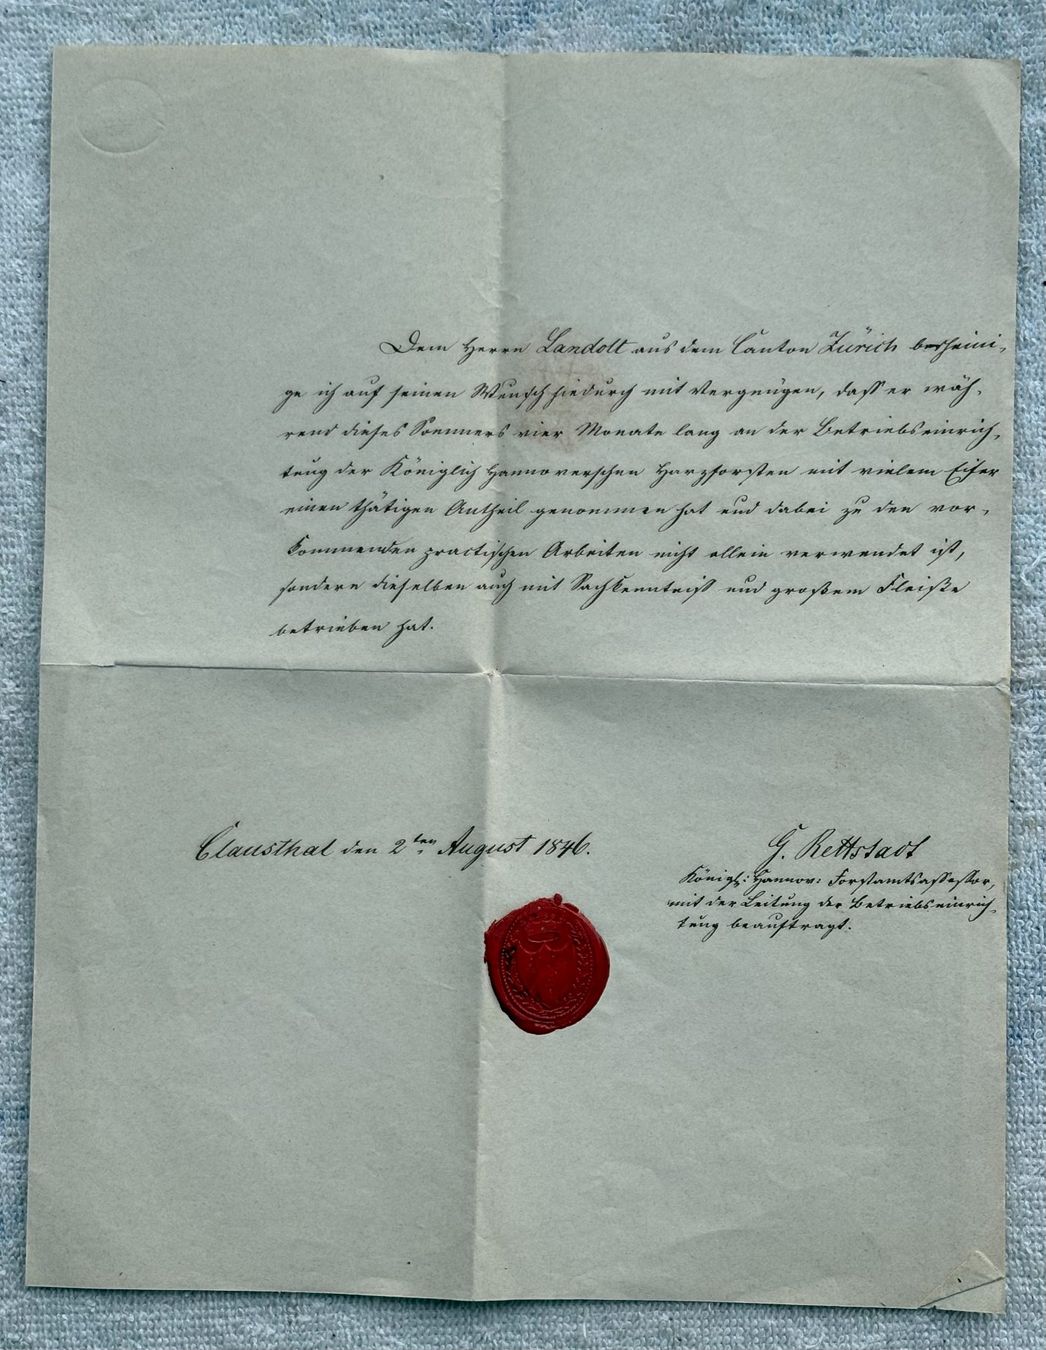 Dem Herrn Landolt aus dem Canton Zürich bescheini-
ge ich auf seinen Wunsch hiedurch mit Vergnügen, daß er wäh-
rend dieses Sommers vier Monate lang an der Betriebseinrich-
tung der Königlich Hannoverschen Harzforsten mit vielem Eifer
einen thätigen Antheil genommen hat und dabei zu den vor-
kommenden practischen Arbeiten nicht allein verwendet ist,
sondern dieselben auch mit Sachkenntniß und großem Fleiße
betrieben hat.
Clausthal den 2ten August 1846.
G. Rettstadt
Königl: Hannov: Forstamtsassessor,
mit der Leitung der Betriebseinrich-
tung beauftragt.